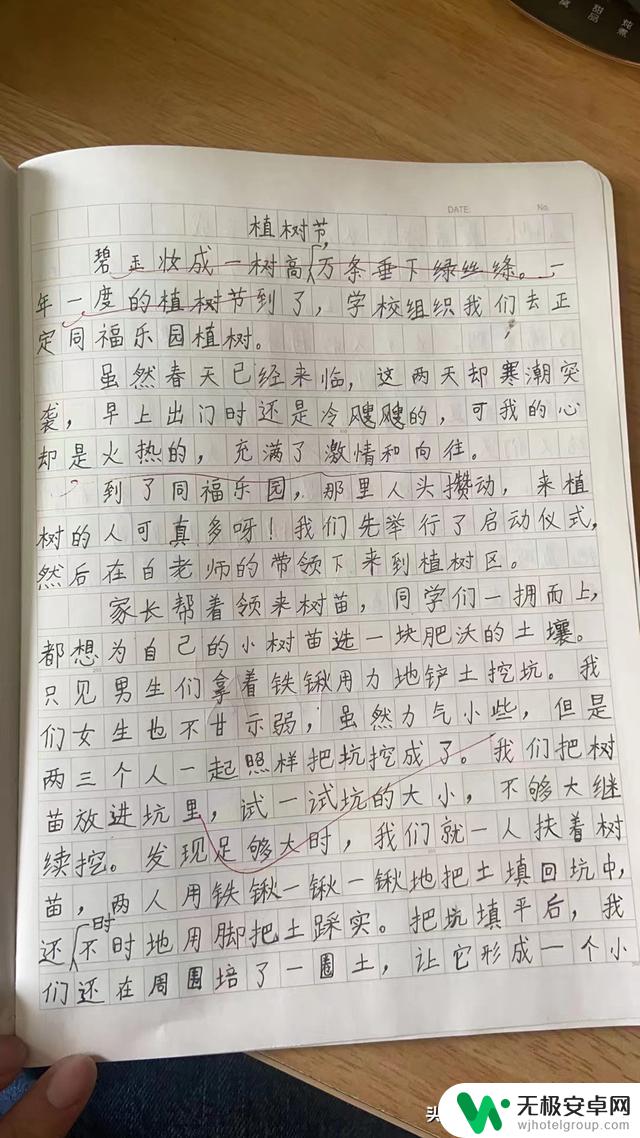 炖煮
甜品
DATE:
No.
植树节
碧玉妆成一树高,万条垂下绿丝绦。一
年一度的植树节到了，学校组织我们去正
定同福乐园植树。
虽然春天已经来临，这两天却寒潮突
袭，早上出门时还是冷飕飕的，可我的心
却是火热的，充满了激情和向往。
到了同福乐园，那里人头攒动，来植
树的人可真多呀！我们先举行了启动仪式，
然后在白老师的带领下来到植树区。
家长帮着领来树苗，同学们一拥而上，
都想为自己的小树苗选一块肥沃的土壤。
只见男生们拿着铁锹用力地铲土挖坑。我
们女生也不甘示弱，虽然力气小些，但是
两三个人一起照样把坑挖成了。我们把树
苗放进坑里，试一试坑的大小，不够大继
续挖。发现足够大时，我们就一人扶着树
苗，两人用铁锹一锹一锹地把土填回坑中，
还时不时地用脚把土踩实。把坑填平后，我
们还在周围培了一圈土，让它形成一个小
头
无极安卓网
wjhotelgroup.com